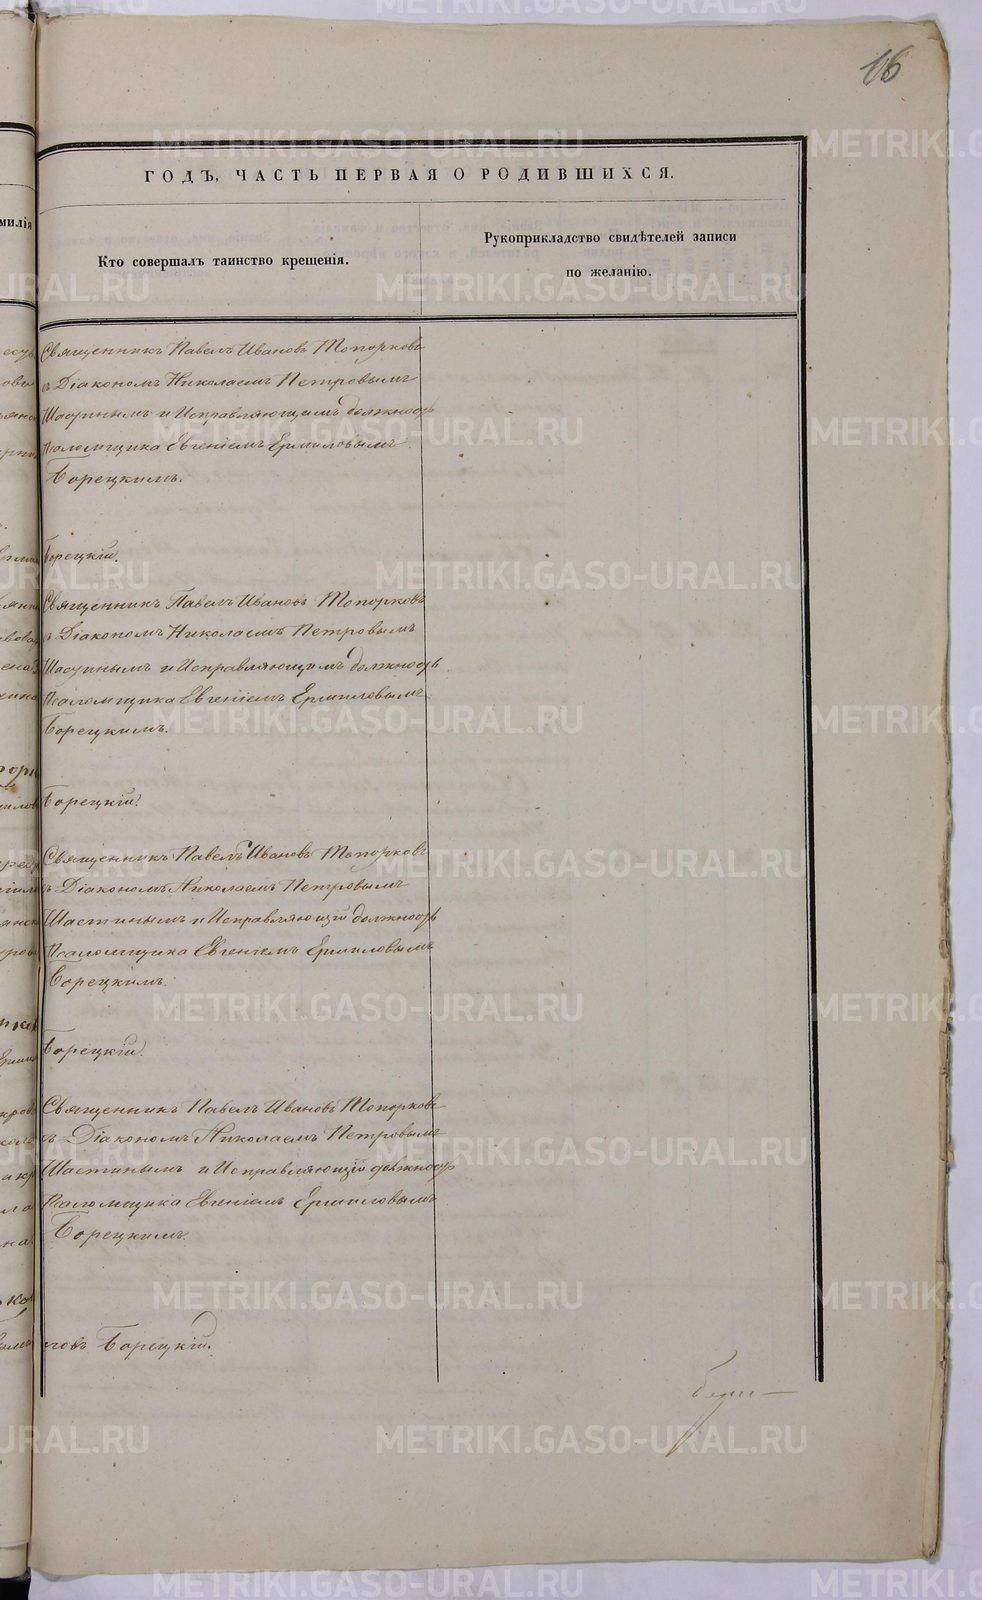 16
ГОДЪ, ЧАСТЬ ПЕРВАЯ О РОДИВШИХСЯ.
милія
Кто совершалъ таинство крещенія.
Рукоприкладство свидѣтелей записи
по желанію.
Священникъ Павелъ Ивановъ Топорковъ
съ Діакономъ Николаемъ Петровымъ
Шастинымъ и Исправляющимъ должность
Псаломщика Евгеніемъ Ермиловымъ
Борецкимъ.
Борецкій.
Священникъ Павелъ Ивановъ Топорковъ
съ Діакономъ Николаемъ Петровымъ
Шастинымъ и Исправляющимъ должность
Псаломщика Евгеніемъ Ермиловымъ
Борецкимъ.
Борецкій.
Священникъ Павелъ Ивановъ Топорковъ
съ Діакономъ Николаемъ Петровымъ
Шастинымъ и Исправляющій должность
Псаломщика Евгеніемъ Ермиловымъ
Борецкимъ.
Борецкій.
Священникъ Павелъ Ивановъ Топорковъ
съ Діакономъ Николаемъ Петровымъ
Шастинымъ и Исправляющій должность
Псаломщика Евгеніемъ Ермиловымъ
Борецкимъ.
Борецкій.
METRIKI.GASO-URAL.RU